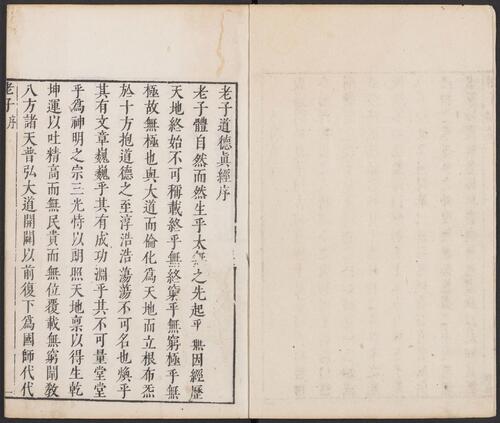 老子道德眞經序
老子體自然而然生乎太無之先起乎無因經歷
天地終始不可稱載終乎無終窮乎無窮極乎無
極故無極也與大道而倫化爲天地而立根布炁
於十方抱道德之至淳浩浩蕩蕩不可名也煥乎
其有文章巍巍乎其有成功淵乎其不可量堂堂
乎爲神明之宗三光恃以朗照天地稟以得生乾
坤運以吐精高而無民貴而無位覆載無窮闡敎
八方諸天普弘大道開闢以前復下爲國師代代
老子序
一